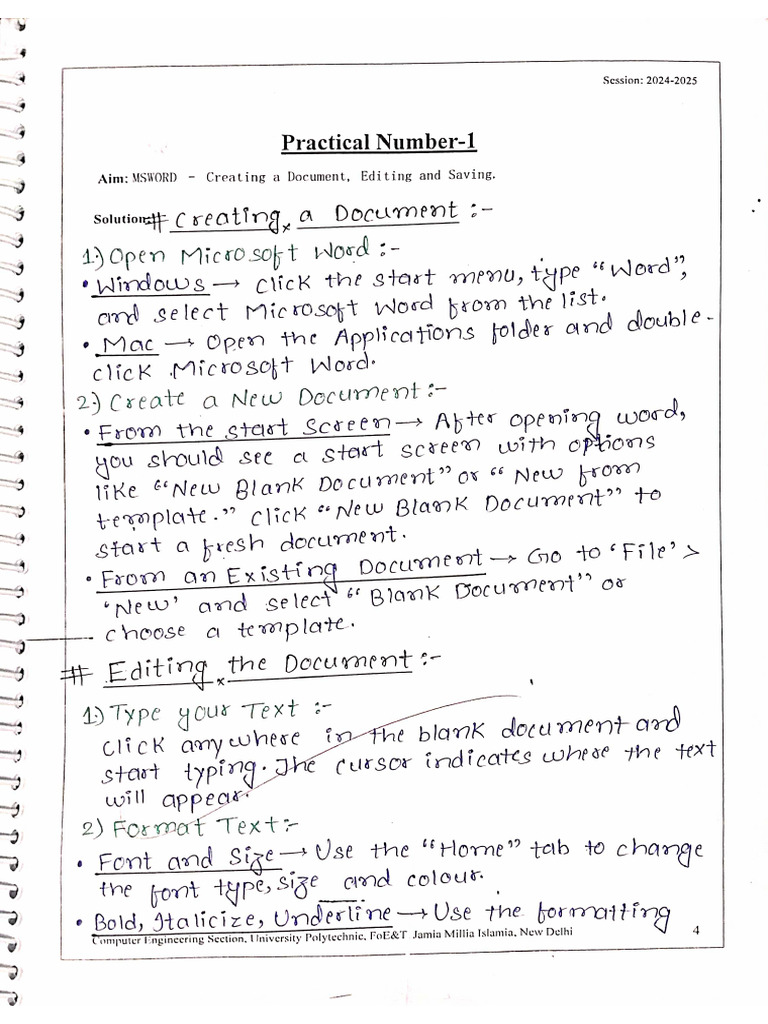 Session: 2024-2025
Practical Number-1
Aim: MSWORD - Creating a Document, Editing and Saving.
Solution:# Creating a Document :-
1.) Open Microsoft Word :-
• Windows → Click the start menu, type "Word",
and select Microsoft Word from the list.
• Mac → Open the Applications folder and double-
click Microsoft Word.
2.) Create a New Document :-
• From the start Screen → After opening word,
you should see a start screen with options
like "New Blank Document" or "New from
template." Click "New Blank Document" to
start a fresh document.
• From an Existing Document → Go to 'File' >
'New' and select "Blank Document" or
choose a template.
# Editing the Document :-
1.) Type your Text :-
Click anywhere in the blank document and
start typing. The cursor indicates where the text
will appear.
2) Format Text :-
• Font and Size → Use the "Home" tab to change
the font type, size and colour.
• Bold, Italicize, Underline → Use the formatting
Computer Engineering Section, University Polytechnic, FoE&T Jamia Millia Islamia, New Delhi 4